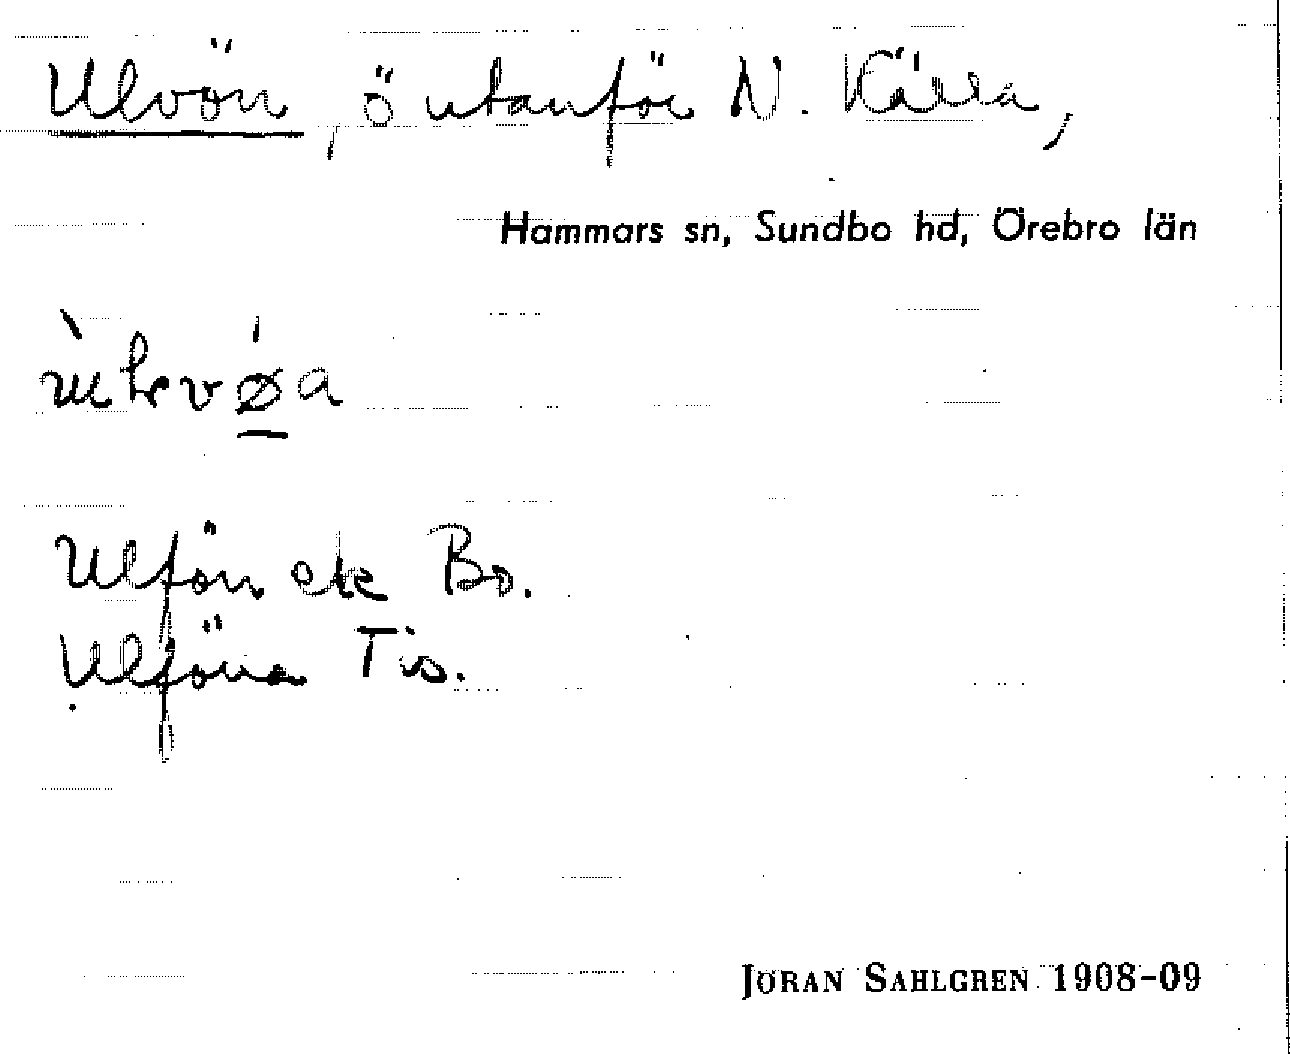 Ulvön, ö utanför N. Källa,
Hammars sn, Sundbo hd, Örebro län
Ulfön ek Bo.
Ulföna Tis.
JÖRAN SAHLGREN 1908-09